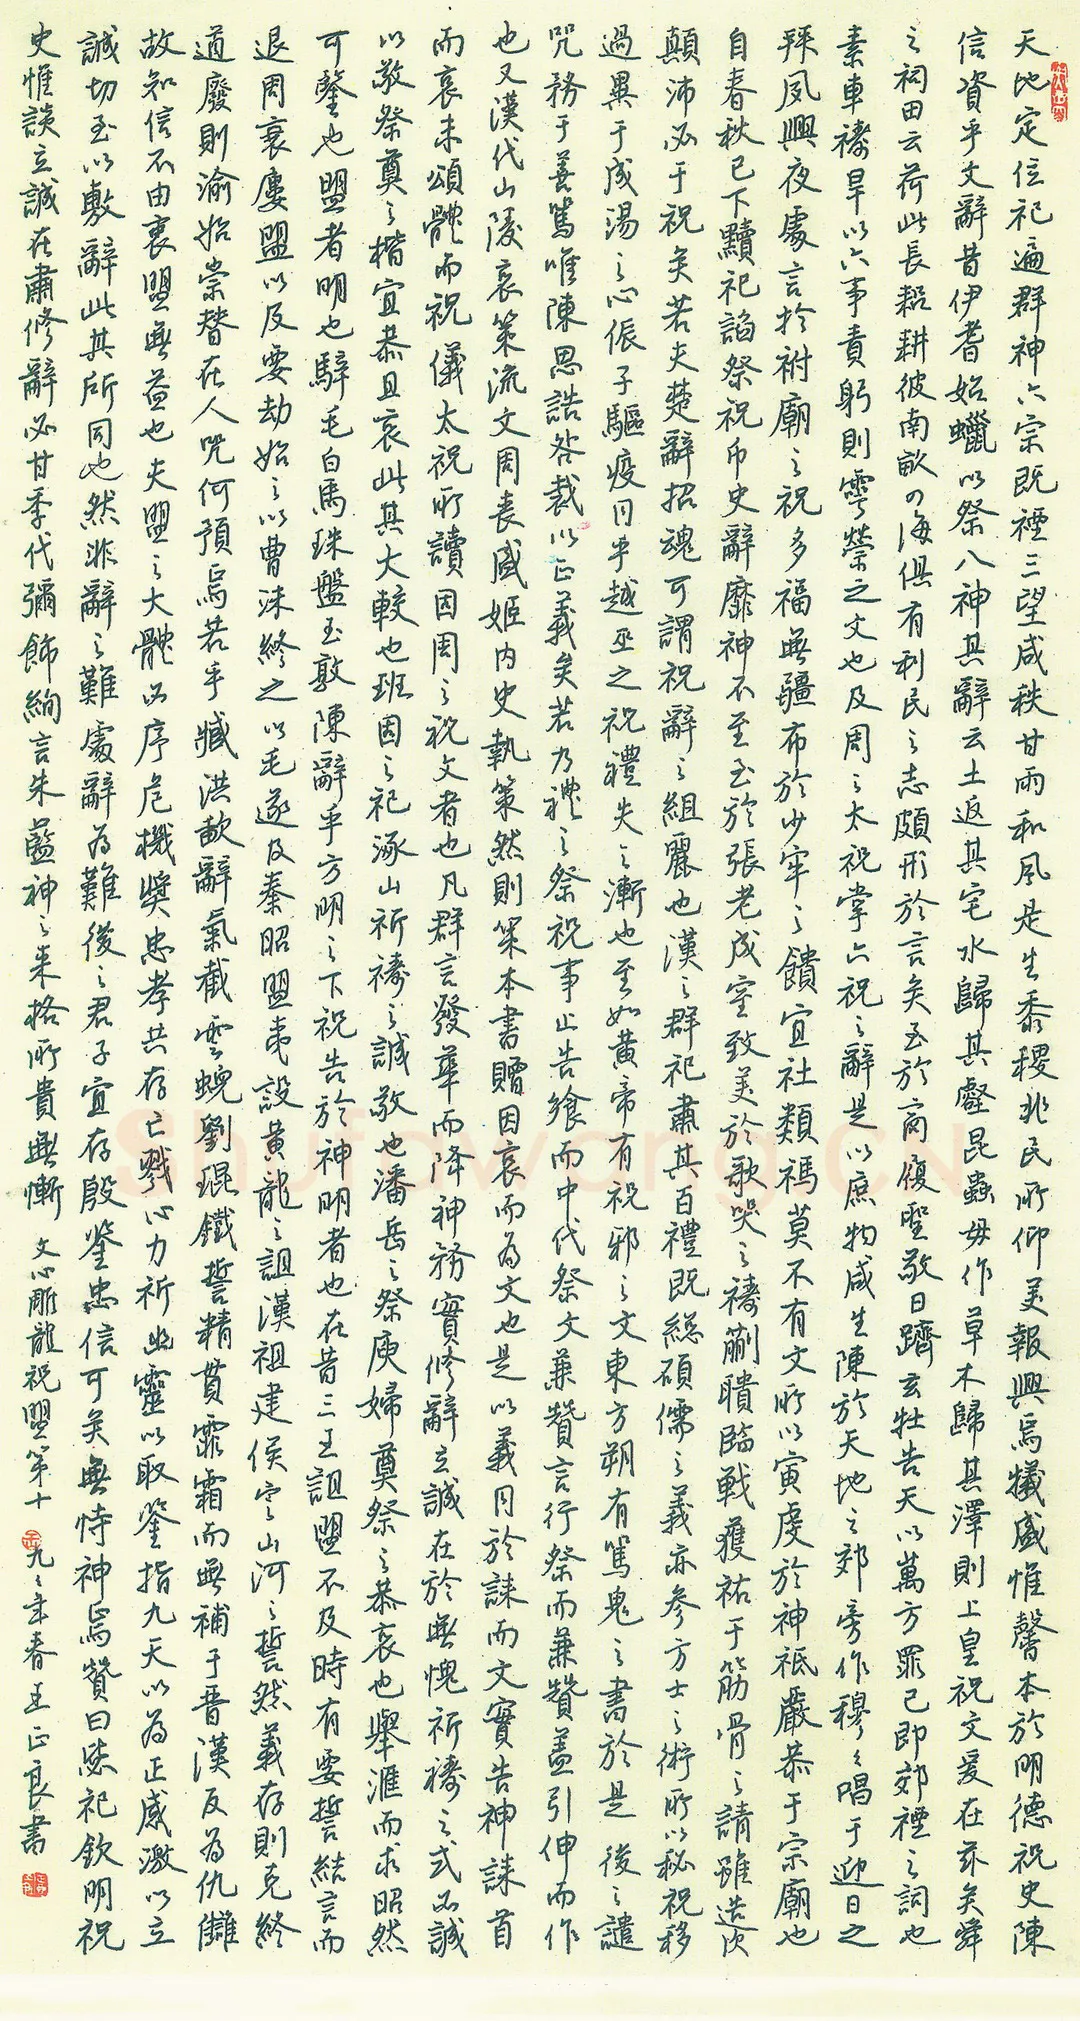 天地定位祀遍群神六宗既禋三望咸秩甘雨和風是生黍稷兆民所仰美報興焉犧盛惟馨本於明德祝史陳
信資乎文辭昔伊耆始蠟以祭八神其辭云土返其宅水歸其壑昆蟲毋作草木歸其澤則上皇祝文爰在茲矣舜
之祠田云荷此長耜耕彼南畝四海俱有利民之志頗形於言矣至於商履聖敬日躋玄牡告天以萬方罪己即郊禋之詞也
素車禱旱以六事責躬則雩禜之文也及周之太祝掌六祝之辭是以庶物咸生陳於天地之郊旁作穆穆唱于迎日之
拜夙興夜處言於祔廟之祝多福無疆布於少牢之饋宜社類禡莫不有文所以寅虔於神祇嚴恭于宗廟也
自春秋已下黷祀諂祭祝幣史辭靡神不至至於張老成室致美於歌哭之禱蒯聵臨戰獲祐于筋骨之請雖造次
顛沛必于祝矣若夫楚辭招魂可謂祝辭之組麗也漢之群祀肅其百禮既總碩儒之義亦參方士之術所以秘祝移
過異于成湯之心侲子驅疫同乎越巫之祝禮失之漸也至如黃帝有祝邪之文東方朔有罵鬼之書於是後之譴
咒務于善罵唯陳思誥咎裁以正義矣若乃禮之祭祝事止告饗而中代祭文兼贊言行祭而兼贊蓋引伸而作
也又漢代山陵哀策流文周喪盛姬内史執策然則策本書贈因哀而為文也是以義同於誄而文實告神誄首
而哀末頌體而祝儀太祝所讀因周之祝文者也凡群言發華而降神務實修辭立誠在於無愧祈禱之式必誠
以敬祭奠之楷宜恭且哀此其大較也班固之祀涿山祈禱之誠敬也潘岳之祭庾婦奠祭之恭哀也舉滙而求昭然
可鑒也盟者明也騂毛白馬珠盤玉敦陳辭乎方明之下祝告於神明者也在昔三王詛盟不及時有要誓結言而
退周衰屢盟以及要劫始之以曹沫終之以毛遂及秦昭盟夷設黃龍之詛漢祖建侯定山河之誓然義存則克終
道廢則渝始崇替在人咒何預焉若乎臧洪歃辭氣截雲蜺劉琨鐵誓精貫霏霜而無補于晉漢反為仇讎
故知信不由衷盟無益也夫盟之大體必序危機獎忠孝共存亡戮心力祈幽靈以取鑒指九天以為正感激以立
誠切至以敷辭此其所同也然非辭之難處辭為難後之君子宜存殷鑒忠信可矣無恃神焉贊曰毖祀欽明祝
史惟談立誠在肅修辭必甘季代彌飾絢言朱藍神之来格所貴無慚 文心雕龍祝盟第十 九九年春王正良書
Shufawang.CN